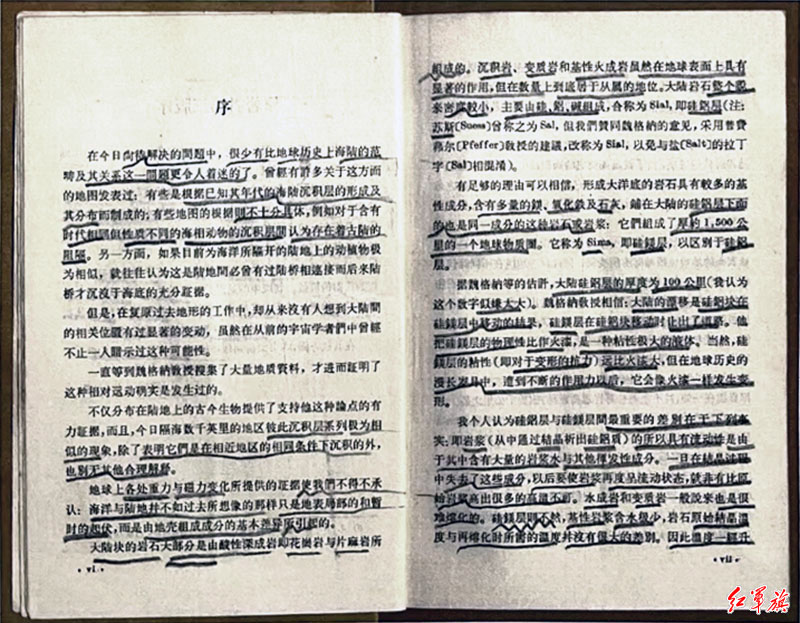 序
在今日尚待解决的問題中,很少有比地球历史上海陆的范
畴及其关系这一問題更令人着迷的了。曾經有許多关于这方面
的地图发表过:有些是根据已知其年代的海陆沉积层的形成及
其分布而制成的;有些地图的根据則不十分具体,例如对于含有
时代相同但性质不同的海相动物的沉积层間认为存在着古陆的
阻隔。另一方面,如果目前为海洋所隔开的陆地上的动植物极
为相似,就往往认为这是陆地間必曾有过陆桥相連接而后来陆
桥才沉没于海底的充分証据。
但是,在复原过去地形的工作中,却从来沒有人想到大陆間
的相关位置有过显著的变动,虽然在从前的宇宙学者們中曾經
不止一人暗示过这种可能性。
一直等到魏格納教授搜集了大量地质資料,才进而証明了
这种相对运动确实是发生过的。
不仅分布在陆地上的古今生物提供了支持他这种論点的有
力証据,而且,今日隔海数千英里的地区彼此沉积层系列极为相
似的现象,除了表明它們是在相近地区的相同条件下沉积的外,
也别无其他合理解释。
地球上各处重力与磁力变化所提供的証据使我們不得不承
认:海洋与陆地并不如过去所想像的那样只是地表局部的和暫
时的起伏,而是由地壳組成成分的基本差异所引起的。
大陆块的岩石大部分是由酸性深成岩即花崗岩与片麻岩所
· vi ·
組成的。沉积岩、变质岩和基性火成岩虽然在地球表面上具有
显著的作用,但在数量上到底居于从属的地位。大陆岩石整个說
来密度較小,主要由硅、鋁、碱組成,合称为 Sial,即硅鋁层(注:
苏斯[Suess]曾称之为 Sal,但我們贊同魏格納的意见,采用普費
弗尔[Pfeffer]教授的建議,改称为 Sial,以免与盐[Salt]的拉丁
字[Sal]相混淆)。
有足够的理由可以相信,形成大洋底的岩石具有較多的基
性成分,含有多量的鎂、氧化鉄及石灰,鋪在大陆的硅鋁层下面
的也是同一成分的这种岩石或岩浆:它們組成了厚約 1,500 公
里的一个地球物质圈。它称为 Sima,即硅鎂层,以区别于硅鋁
层。
据魏格納等的估計,大陆硅鋁层的厚度为 100 公里(我认为
这个数字似嫌太大)。魏格納教授相信:大陆的漂移是硅鋁块在
硅鎂层中移动的結果,硅鎂层在硅鋁块移动时让出了道路。他
把硅鎂层的物理性比作火漆,是一种粘性极大的液体。当然,硅
鎂层的粘性(即对于变形的抗力)远比火漆大,但在地球历史的
漫长岁月中,遭到不断的作用力以后,它会像火漆一样发生变
形。
我个人认为硅鋁层与硅鎂层間最重要的差别在于下列事
实:即岩浆(从中通过結晶析出硅鋁质)的所以具有流动性是由
于其中含有大量的岩浆水与其他揮发性成分。一旦在結晶过程
中失去了这些成分,以后要使岩浆再度呈流动状态,就非有比原
始岩浆高出很多的高温不可。水成岩和变质岩一般說来也是很
难熔化的。硅鎂层則不然,基性岩浆含水极少,岩石原始結晶温
度与再熔化时所需的温度并沒有很大的差别。因此温度一經升
· vii ·
红军旗